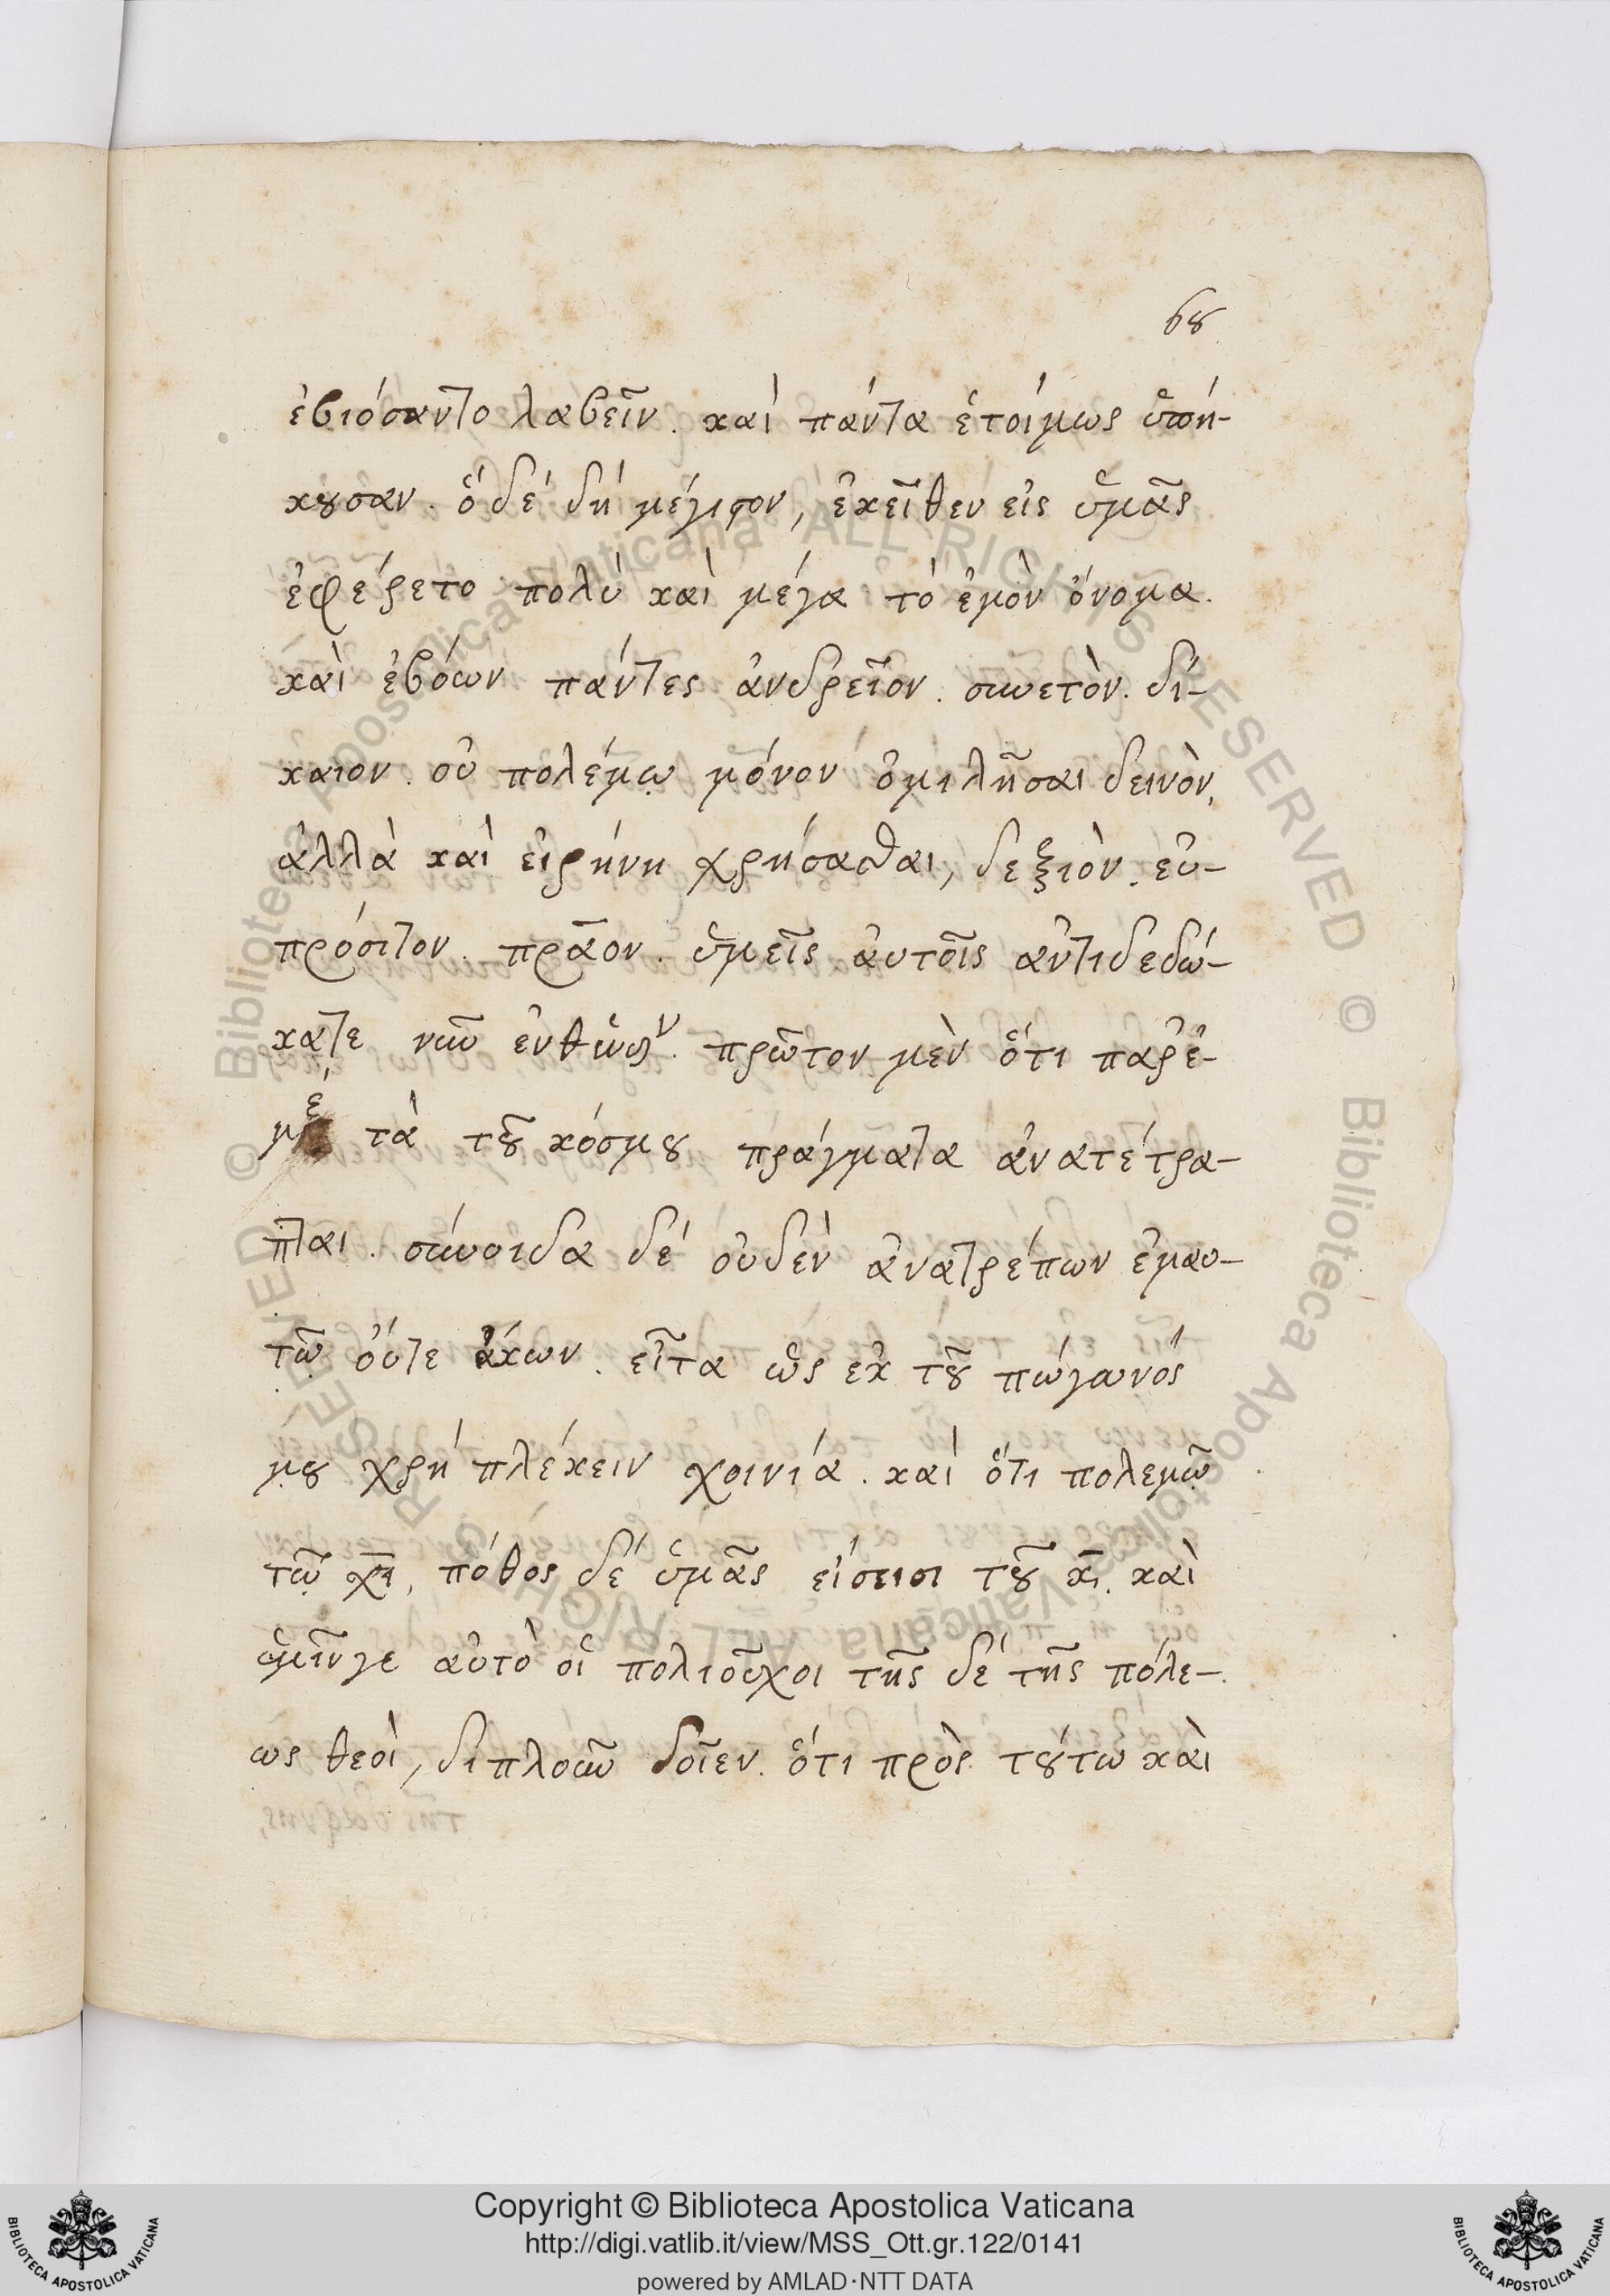 68
ἐβιόσαντο λαβεῖν. καὶ πάντα ἑτοίμως ὑπή-
κουσαν. ὁ δέ δή μέγιστον, ἐκεῖθεν εἰς ὑμᾶς
ἐφέρετο πολύ καὶ μέγα τὸ ἐμὸν ὄνομα.
καὶ ἐβόων πάντες ἀνδρεῖον. συνετὸν. δί-
καιον. οὐ πολέμῳ μόνον ὁμιλῆσαι δεινὸν,
ἀλλὰ καὶ εἰρήνη χρήσασθαι, δεξιὸν. εὐ-
πρόσιτον. πρᾶον. ὑμεῖς ἀυτοῖς ἀντιδεδώ-
κατε νῦν ἐνθένδεν. πρῶτον μὲν ὅτι παρ' ἐ-
μὲ τὰ τοῦ κόσμου πράγματα ἀνατέτρα-
πται. σύνοιδα δέ οὐδὲν ἀνατρέπων ἐμαυ-
τῷ οὔτε ἄκων. εἶτα ὡς ἐκ τοῦ πώγωνός
μου χρή πλέκειν χοινία. καὶ ὅτι πολεμῶ
τῷ χῖ, πόθος δέ ὑμᾶς εἴσεισι τοῦ κ̄ι. καὶ
ὑμῖν γε αὐτὸ οἱ πολιοῦχοι τῆς δέ τῆς πόλε-
ως θεοὶ, διπλοῦν δοῖεν. ὅτι πρὸς τούτω καὶ
Copyright © Biblioteca Apostolica Vaticana
http://digi.vatlib.it/view/MSS_Ott.gr.122/0141
powered by AMLAD·NTT DATA
BIBLIOTECA APOSTOLICA VATICANA
BIBLIOTECA APOSTOLICA VATICANA
© Biblioteca Apostolica Vaticana ALL RIGHTS RESERVED © Biblioteca Apostolica Vaticana ALL RIGHTS RESERVED